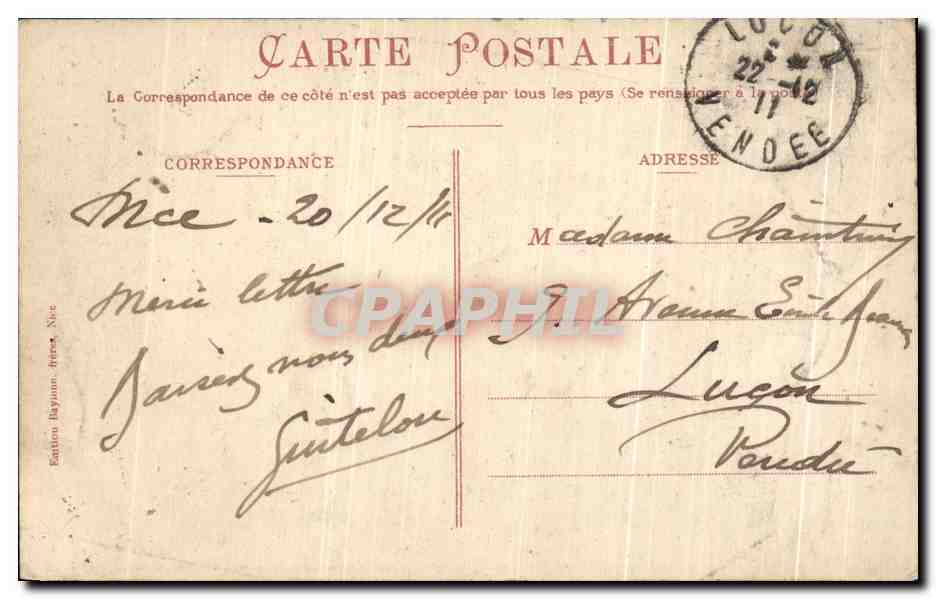 CARTE POSTALE
La Correspondance de ce côté n'est pas acceptée par tous les pays (Se renseigner à la poste)
LUÇON
22 -12
11
VENDEE
CORRESPONDANCE
ADRESSE
Nice - 20/12/11
Merci lettre
Baisers nous deux
Madame
9, Avenue Emile
Luçon
Vendée
CPAPHIL
Edition Bayionn. frères, Nice